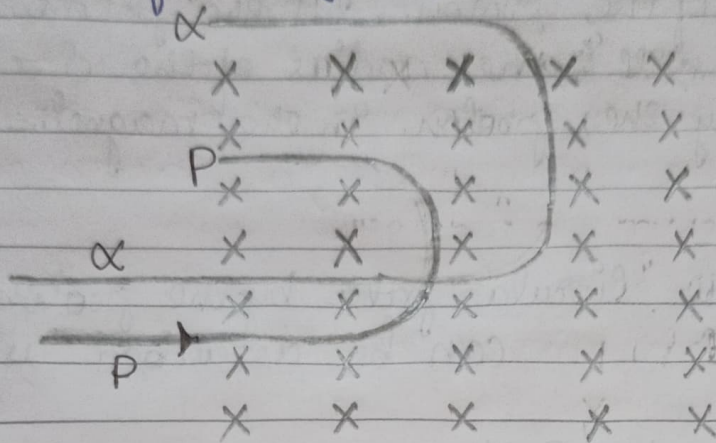 α
× × × × ×
× × × × ×
P
× × × × ×
α
× × × × ×
× × × × ×
P
× × × × ×
× × × × ×